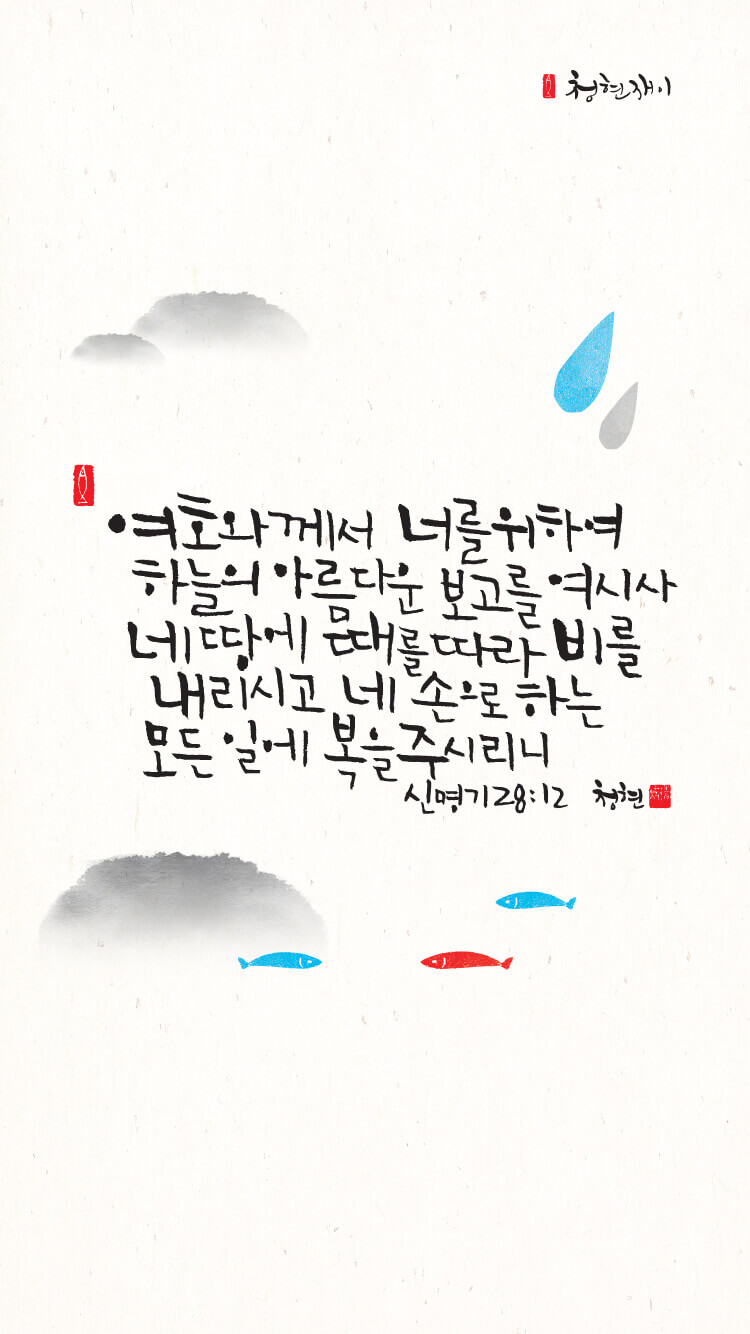 청현재이
여호와께서 너를위하여
하늘의 아름다운 보고를 여시사
네 땅에 때를따라 비를
내리시고 네 손으로 하는
모든 일에 복을주시리니
신명기28:12 청현